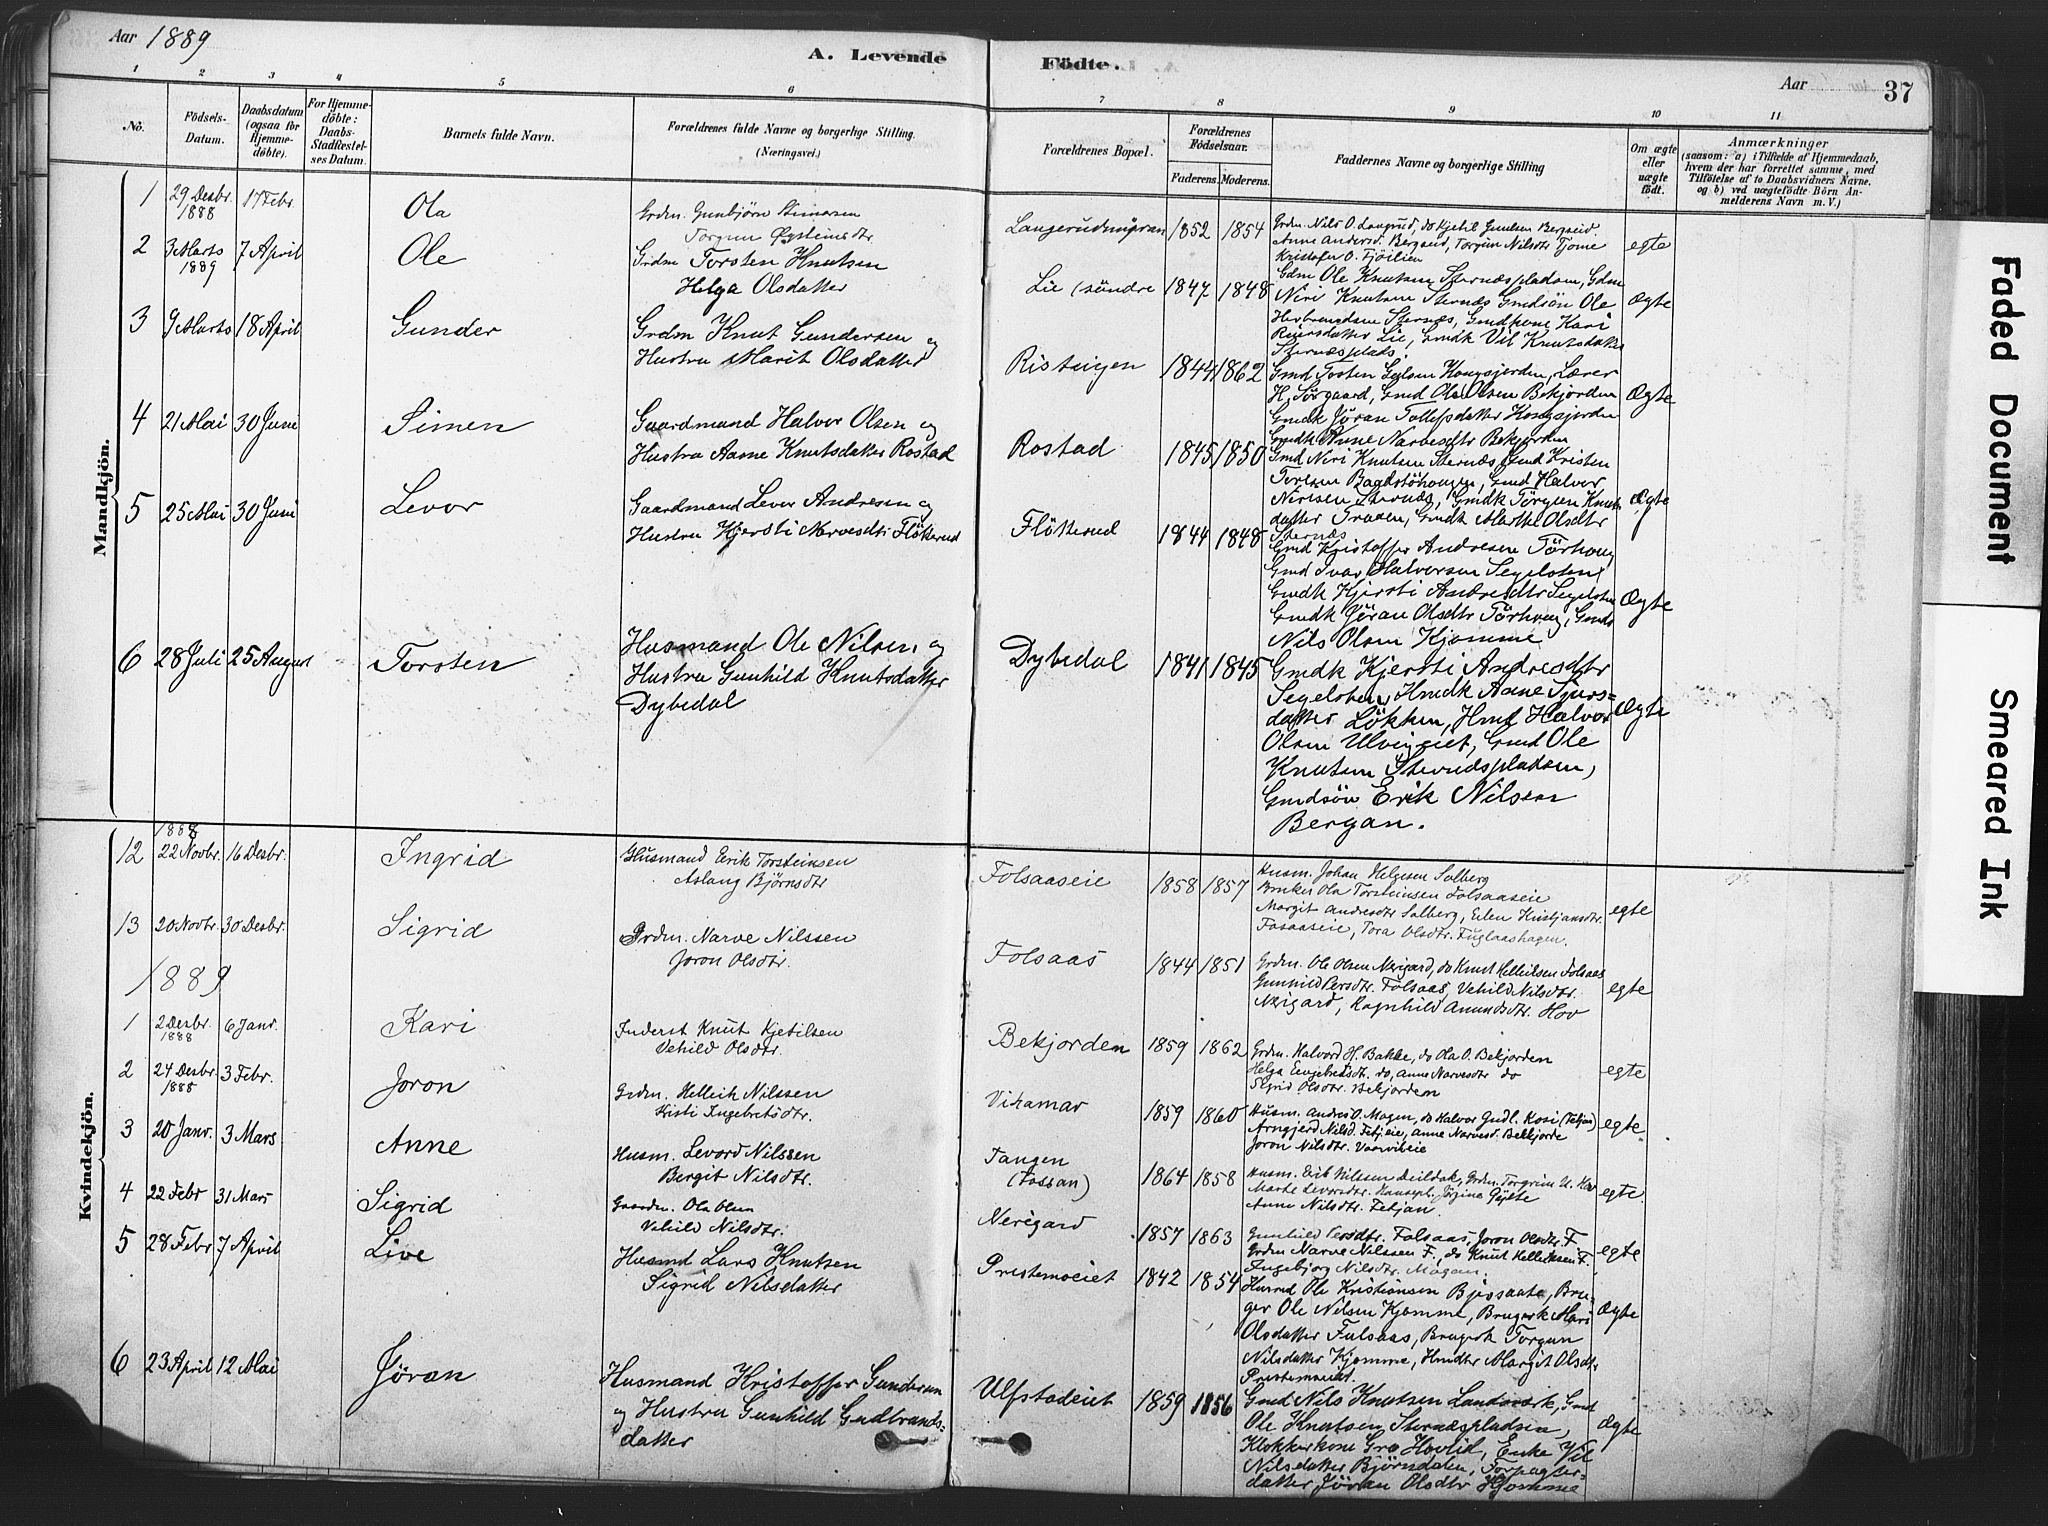 Aar 1889
A. Levende
Födte.
Aar 37
1 2 3 4 5 6 7 8 9 10 11
No.
Födsels-
Datum.
Daabsdatum
(ogsaa for
Hjemme-
döbte).
For Hjemme-
döbte:
Daabs-
Stadfæstel-
ses Datum.
Barnets fulde Navn.
Forældrenes fulde Navne og borgerlige Stilling.
(Næringsvei.)
Forældrenes Bopæl.
Forældrenes
Födselsaar.
Faderens. Moderens.
Faddernes Navne og borgerlige Stilling
Om ægte
eller
uægte
födt.
Anmærkninger
(saasom: a) i Tilfælde af Hjemmedaab,
hvem der har forrettet samme, med
Tilföielse af to Daabsvidners Navne.
og b) ved uægtefödte Börn An-
melderens Navn m. V.)
Mandkjön.
1 29 Desbr. 1888 17 Febr. Ola
Grdm. Gunbjörn Simersen
Torgun Öysteinsdtr
Langerudmoran 1852 1854
Grdm. Nils O. Langrud, do Kjetil Gunlsen Bergseid
Anne Andersd. Bergseid, Torgun Nilsdtr Tjome
Kristofer O. Fjöilien
egte
2 3 Marts 1889 7 April Ole
Grdm Torsten Knutsen
Helga Olsdatter
Lie (söndre 1847 1848
Gdm Ole Knutsen Sternæspladsen, Gdm
Niri Knutsen Sternæs Gmdsön Ole
Herbrandsen Sternæs, Gmdkone Kari
Reiersdatter Lie, Gmdk Vil Knutsdatter
Sternæsplads.
Ægte
3 9 Marts 18 April Gunder
Grdm Knut Gundersen og
Hustru Marit Olsdatter
Risteigen 1844 1862
Gmd Torsten Gulsen Kongsjorden, Lærer
H. Sörgaard, Gmd Ole Olsen Bekjorden
Gmdk Jöran Tollefsdatter Kongsjorden
Gmdk Anne Narvesdtr Bekjorden
Ægte
4 21 Mai 30 Juni Simen
Gaardmand Halvor Olsen og
Hustru Aarne Knutsdatter Rostad
Rostad 1845 1850
Gmd Niri Knutsen Sternæs, Gmd Kristen
Toresen Bagstöhougen, Gmd Halvor
Nirisen Sternæs, Gmdk Törgun Knuts
datter Traaen, Gmdk Marthe Olsdtr
Sternæs
Ægte
5 25 Mai 30 Juni Levor
Gaardmand Levor Andresen og
Hustru Kjersti Narvesdtr Flötterud
Flötterud 1844 1848
Gmd Kristoffer Andresen Törhoug
Gmd Ivar Halversen Segelsten,
Gmdk Kjersti Andresdtr Segelsten
Gmdk Jöran Olsdtr Törhoug, Gmds
Nils Olsen Kjomme
Ægte
6 28 Juli 25 August Torsten
Husmand Ole Nilsen, og
Hustru Gunhild Knutsdatter
Dybedal
Dybedal 1841 1845
Gmdk Kjersti Andresdtr
Segelsten, Hmdk Aane Sjurs-
datter Lökken, Hmd Halvor
Olsen Ulvineiet, Gmd Ole
Knutsen Sternæspladsen,
Gmdsön Erik Nilsen
Bergan.
Ægte
Kvindekjön.
12 1888 22 Novbr. 16 Desbr. Ingrid
Husmand Eerik Torsteinsen
Aslaug Björnsdtr
Folsaaseie 1858 1857
Husm. Johan Helgesen Solberg
Enke Ola Torsteinsen Folsaaseie
Margit Andresdtr Solberg, Eilen Kristjansdtr.
Fosaaseie, Tora Olsdtr. Fuglaashagen.
egte
13 20 Novbr. 30 Desbr. Sigrid
Grdm. Narve Nilssen
Joron Olsdtr.
Folsaas 1844 1851
Grdm. Ole Olsen Nerigard, do Knut Helleiksen Folsaas
Gunhild Persdtr. Folsaas, Vehild Nilsdtr.
Nerigard, Ragnhild Amundsdtr. Hov
egte
1889
1 2 Desbr. 1888 6 Janr. Kari
Inderst Knut Kjetilsen
Vehild Olsdtr.
Bekjorden 1859 1862
Grdm. Halvord H. Bakke, do Ola O. Bekjorden
Helga Eengebretsdt. do, Anne Narvesdtr do
Sigrid Olsdtr. Bekjorden
egte
2 24 Desbr. 1888 3 Febr. Joron
Grdm. Helleik Nilssen
Kristi Ingebretsdtr.
Vikamar 1859 1860
Husm. Andres O. Mogen, do Halvor Gudl. Kosi (Fetjan)
Arngjerd Nilsd. Fetjeie, Anne Narvesd. Bekkjorde
Joron Nilsdtr. Vaarvikeie
egte
3 20 Janr. 3 Mars Anne
Husm. Levord Nilssen
Bergit Nilsdtr.
Tangen
(Fossan) 1864 1858
Husm. Erik Nilssen Deildak, Grdm. Torgrim U. Hov
Marte Leversdtr. Jörgine Gjöte
Anne Nilsdtr. Fetjan.
egte
4 22 Febr 31 Mars Sigrid
Gaardm. Ola Olsen
Vehild Nilsdtr.
Nerigard 1857 1863
Gunhild Persdtr. Folsaas, Joron Olsdtr. F
Grdm Narve Nilssen F., do Knut Helleiksen F.
Ingebjorg Nilsdtr. Mogan.
egte
5 28 Febr 7 April Live
Husmd Lars Knutsen
Sigrid Nilsdatter
Prestemoeiet 1842 1854
Husmd Ole Kristiansen Bjösaate, Bru-
ger Ole Nilsen Kjomme, Brugerk Mari
Olsdatter Fulsaas, Brugerk Torgun
Nilsdatter Kjomme, Hmdtr Margit Olsdtr
Prestemoeiet
Ægte
6 23 April 12 Mai Jöran
Husmand Kristoffer Gundersen
og Hustru Gunhild Gudbrands-
datter
Ulfstadeiet 1859 1856
Gmd Nils Knutsen Landsverk, Gmd
Ole Knutsen Sternæspladsen,
Klokkerkone Gro Hovlid, Enke Vil
Nilsdatter Björndalen, Forpagter-
datter Jöran Olsdtr Kjomme
Ægte
Faded Document
Smeared Ink